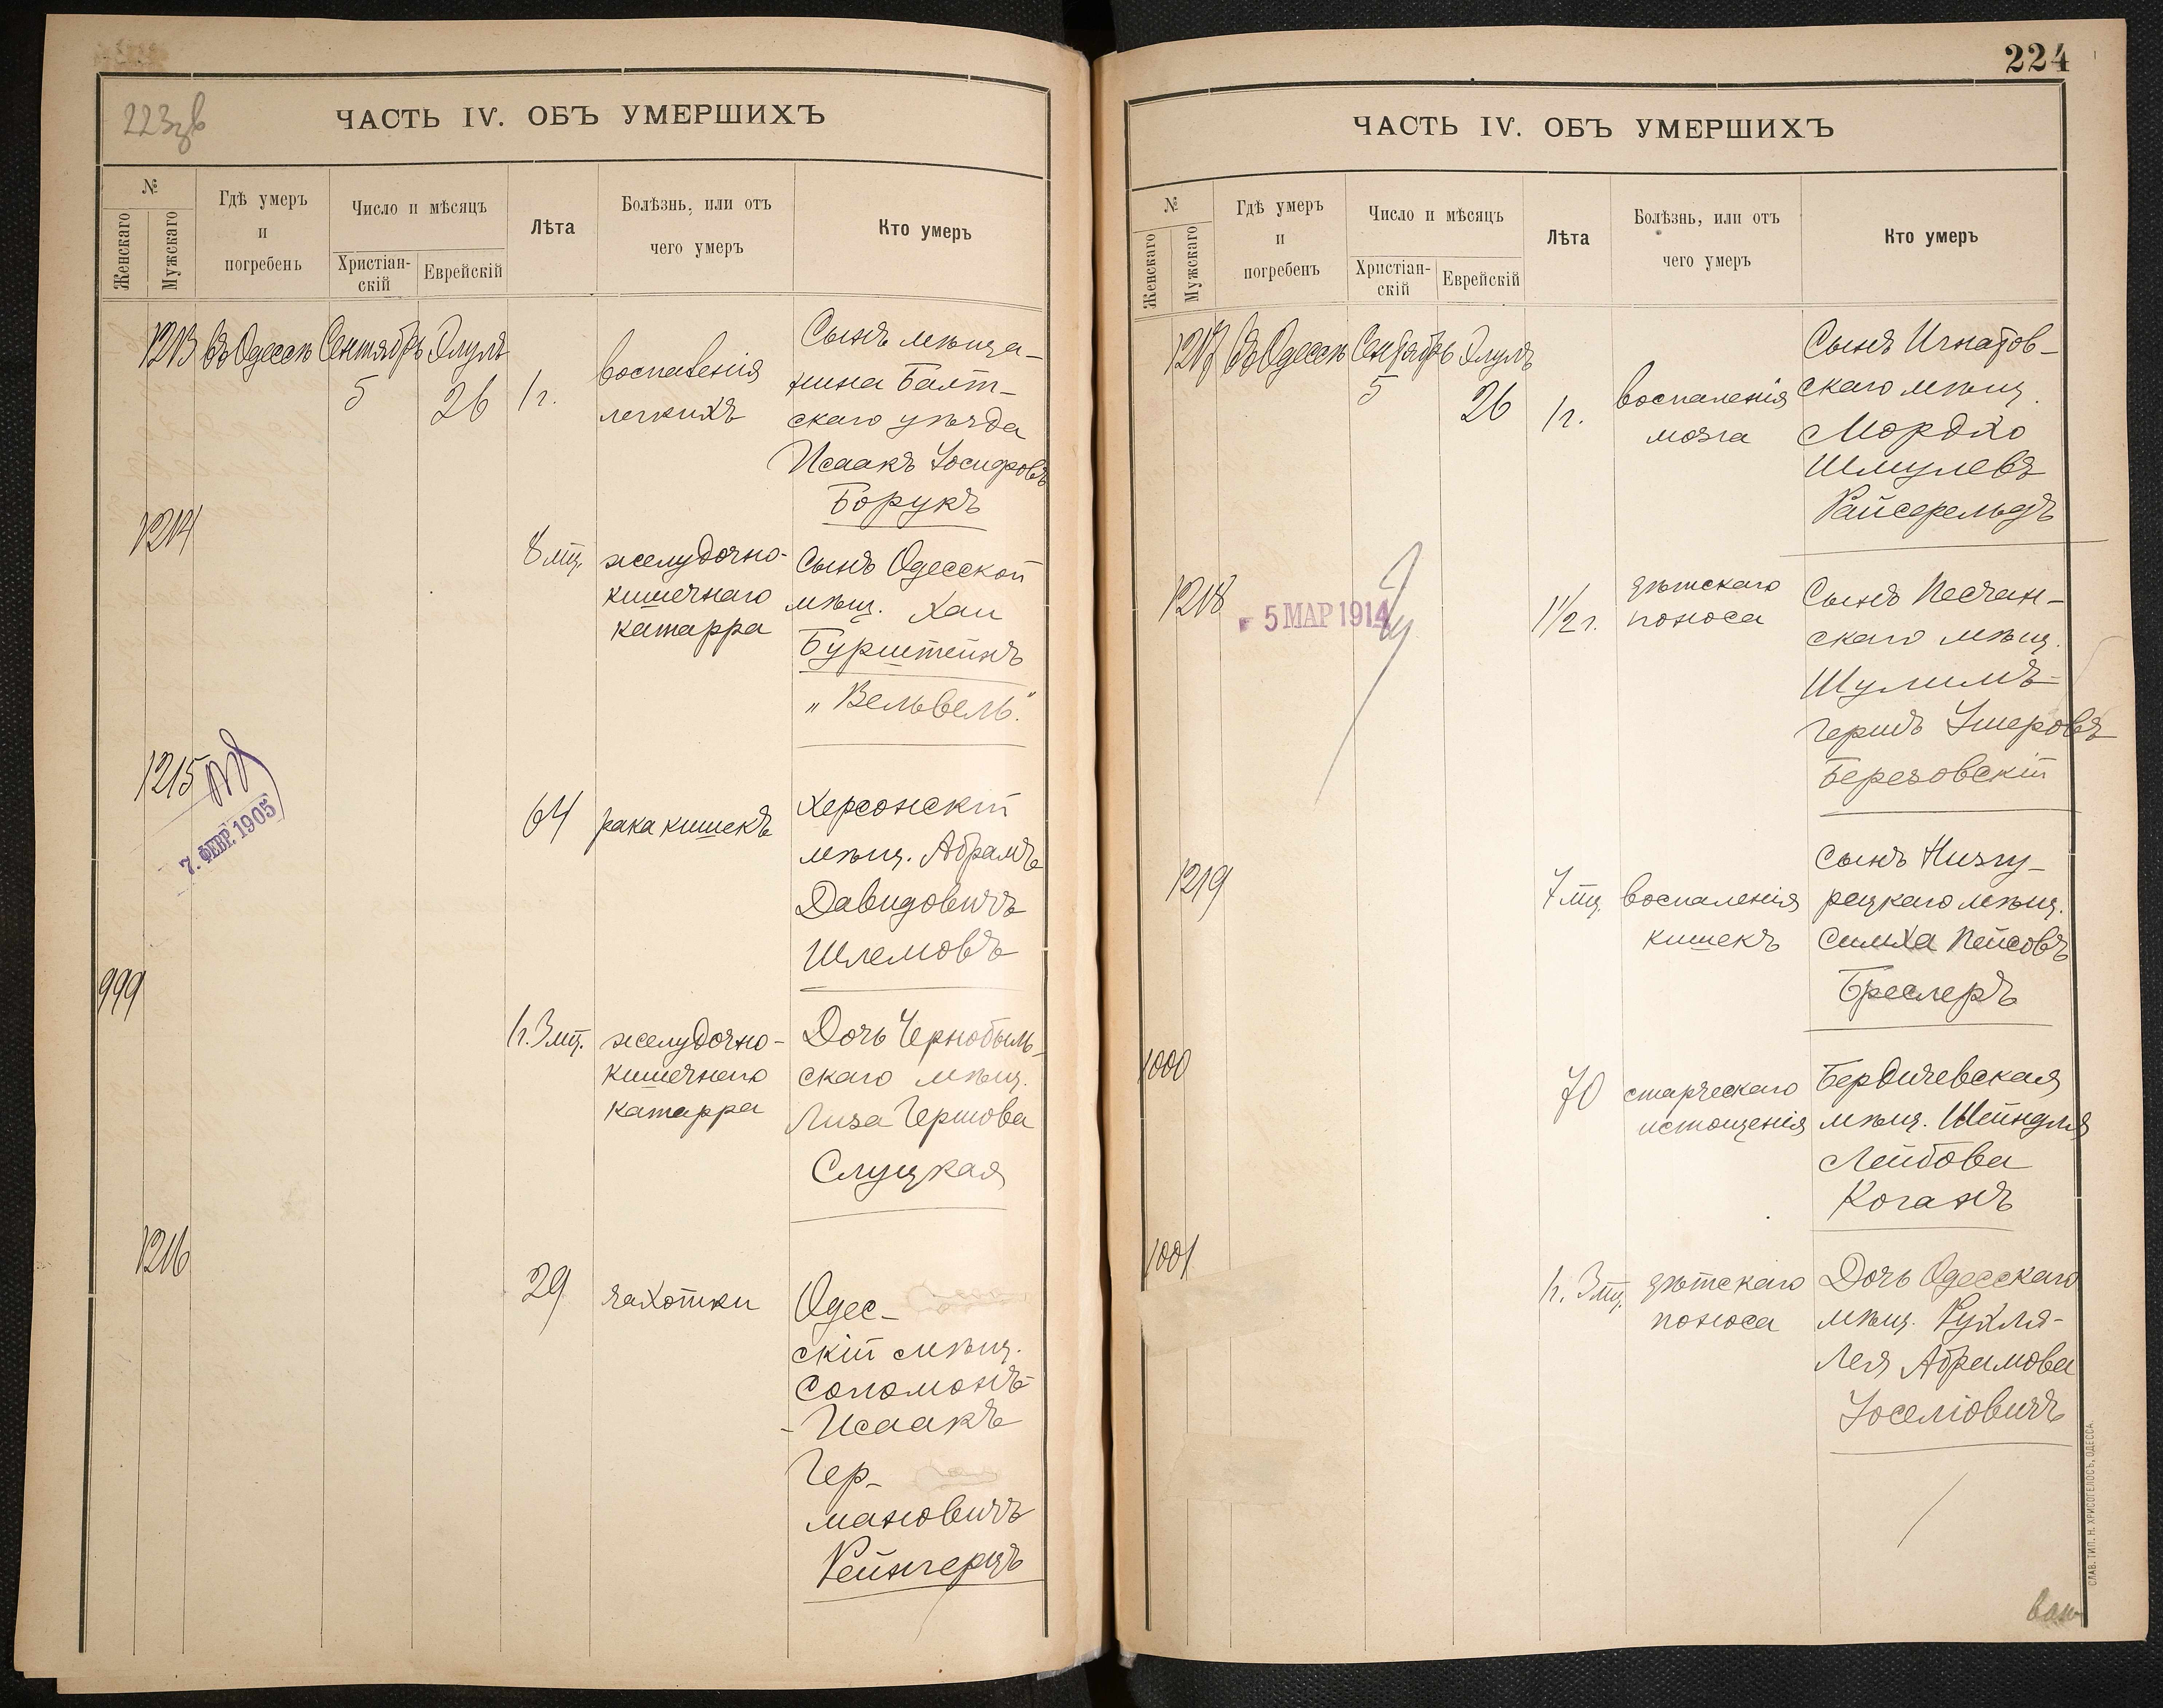 223зв
ЧАСТЬ IV. ОБЪ УМЕРШИХЪ
№
Женскаго
Мужскаго
Гдѣ умеръ
и
погребенъ
Число и мѣсяцъ
Христіан-
скій
Еврейскій
Лѣта
Болѣзнь, или отъ
чего умеръ
Кто умеръ
1213 въ Одессѣ Сентябрь Элулъ
5 26 1 г.
воспаленія
легкихъ
Сынъ мѣща-
нина Балт-
скаго уѣзда
Исаакъ Іосифовъ
Борукъ
1214
8 мц.
желудочно-
кишечнаго
катарра
Сынъ Одесской
мѣщ. Хаи
Бурштейнъ
„Вельвель“
1215
7. ФЕВР. 1905
64
рака кишекъ
Херсонскій
мѣщ. Абрамъ
Давидовичъ
Шлемовъ
999
1 г. 3 мц.
желудочно-
кишечнаго
катарра
Дочь Чернобыль-
скаго мѣщ.
Лиза Гершова
Слуцкая
1216
29
чахотки
Одес-
скій мѣщ.
Соломонъ-
-Исаакъ
Гер-
мановичъ
Рейнгерцъ
224
ЧАСТЬ IV. ОБЪ УМЕРШИХЪ
№
Женскаго
Мужскаго
Гдѣ умеръ
и
погребенъ
Число и мѣсяцъ
Христіан-
скій
Еврейскій
Лѣта
Болѣзнь, или отъ
чего умеръ
Кто умеръ
1217 въ Одессѣ Сентябрь Элулъ
5 26 1 г.
воспаленія
мозга
Сынъ Игнатов-
скаго мѣщ.
Мордхо
Шмулевъ
Райсфельдъ
1218
5 МАР 1914
1 1/2 г.
дѣтскаго
поноса
Сынъ Песчан-
скаго мѣщ.
Шулимъ-
Гершъ Ушеровъ
Березовскій
1219
7 мц.
воспаленія
кишекъ
Сынъ Низгу-
рецкаго мѣщ.
Симха Пейсовъ
Бреслеръ
1000
70
старческаго
истощенія
Бердичевская
мѣщ. Шейндля
Лейбова
Коганъ
1001
1 г. 3 мц.
дѣтскаго
поноса
Дочь Одесскаго
мѣщ. Рухля-
Лея Абрамова
Іоселіовичъ
СЛАВ. ТИП. Н. ХРИСОГЕЛОСЪ, ОДЕССА.